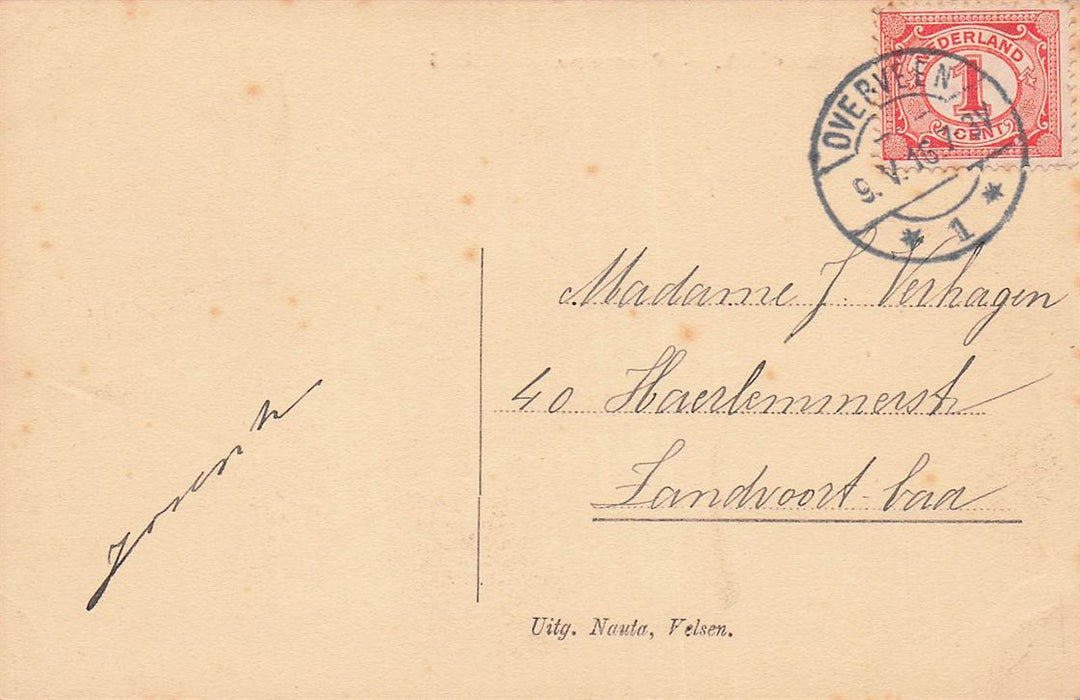 NEDERLAND
1
CENT
OVERVEEN
9.V.16
1
Madame J. Verhagen
40 Haerlemmerstr
Zandvoort-baa
Uitg. Nauta, Velsen.